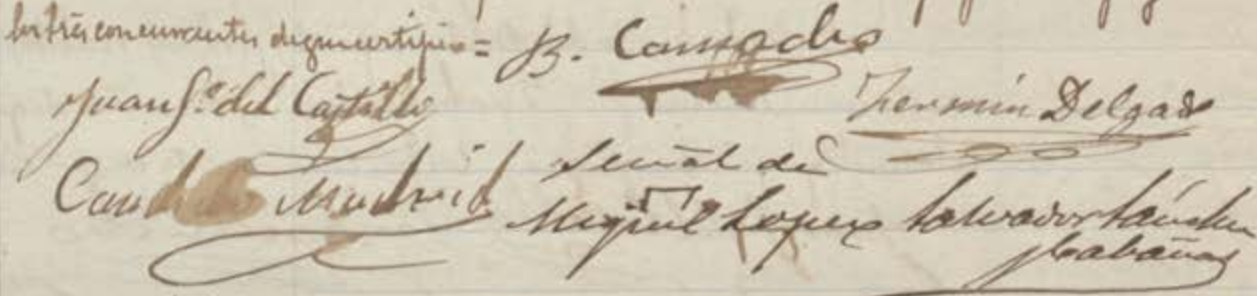 los tres concurrentes de que certifico = B. Camacho
Juan Sº. del Castillo Fermin Delgado
Candido Madrid Señal de
Miguel Lopez Salvador Sánchez
Cabañas